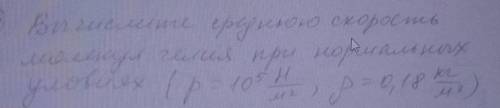 Вычислите среднюю скорость
молекул гелия при нормальных
условиях (p = 10⁵ Н/м², ρ = 0,18 кг/м³)